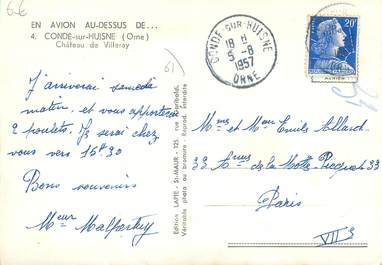 66
EN AVION AU-DESSUS DE...
4. CONDE-sur-HUISNE (Orne)
Château de Villeray
61
CONDE-SUR-HUISNE
18 H
5-8
1957
ORNE
20F
J'arriverai samedi
matin et vous apporterai
2 poulets. Je serai chez
vous vers 15h30
Bons souvenirs
Meur Malfertuy
Edition LAPIE - St-MAUR - 125, rue Garibaldi.
Véritable photo au bromure - Reprod. interdite
Mme et Mr Emile Allard
33 Avenue de la Motte-Picquet 33
Paris
VII e